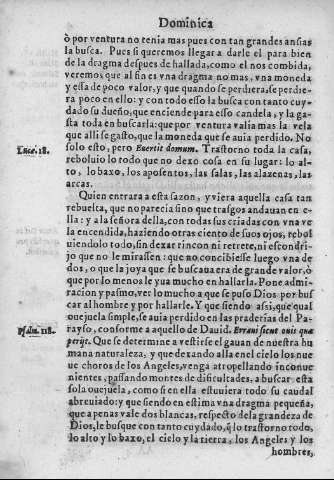 Dominica
ò por ventura no tenia mas pues con tan grandes ansias
la busca. Pues si queremos llegar a darle el para bien
de la dragma despues de hallada, como el nos combida,
veremos que al fin es vna dragma no mas, vna moneda
y essa de poco valor, y que quando se perdiera, se perdie
ra poco en ello: y con todo esso la busca con tanto cuy-
dado su dueño, que enciende para esso candela, y la ga-
sta toda en buscarla: que por ventura valia mas la vela
que alli se gasto, que la moneda que se auia perdido. No
Lucæ. 18.
solo esto, pero Euertit domum. Trastorno toda la casa,
reboluio lo todo que no dexó cosa en su lugar: lo al-
to, lo baxo, los aposentos, las salas, las alazenas, las
arcas.
Quien entrara a esta sazon, y viera aquella casa tan
rebuelta, que no parecia sino que trasgos andauan en e-
lla: y a la señora della, con todas sus criadas con vna ve
la encendida, haziendo otras ciento de suos ojos, rebol
uiendolo todo, sin dexar rincon ni retrete, ni escondri-
jo que no le mirassen: que no concibiesse luego vna de
dos, o que la joya que se buscaua era de grande valor, ò
que por lo menos le yua mucho en hallarla. Pone admi-
racion y pasmo, ver lo mucho a que se puso Dios por bus
car al hombre y por hallarle. Y que siendo assi, que qual
ouejuela simple, se auia perdido en las praderias del Pa-
Psalm. 118.
rayso, conforme a aquello de Dauid. Erraui sicut ouis quæ
perijt. Que se determine a vestirse el gauan de nuestra hu
mana naturaleza, y que dexando alla en el cielo los nue
ue choros de los Angeles, venga atropellando inconue
nientes, passando montes de dificultades, a buscar esta
sola ouejuela, como si en ella estuuiera todo su caudal
abreuiado: y que siendo en estima vna dragma pequeña,
que a penas vale dos blancas, respecto de la grandeza de
Dios, le busque con tanto cuydado, q̃ lo trastorno todo,
lo alto y lo baxo, el cielo y la tierra, los Angeles y los
hombres,